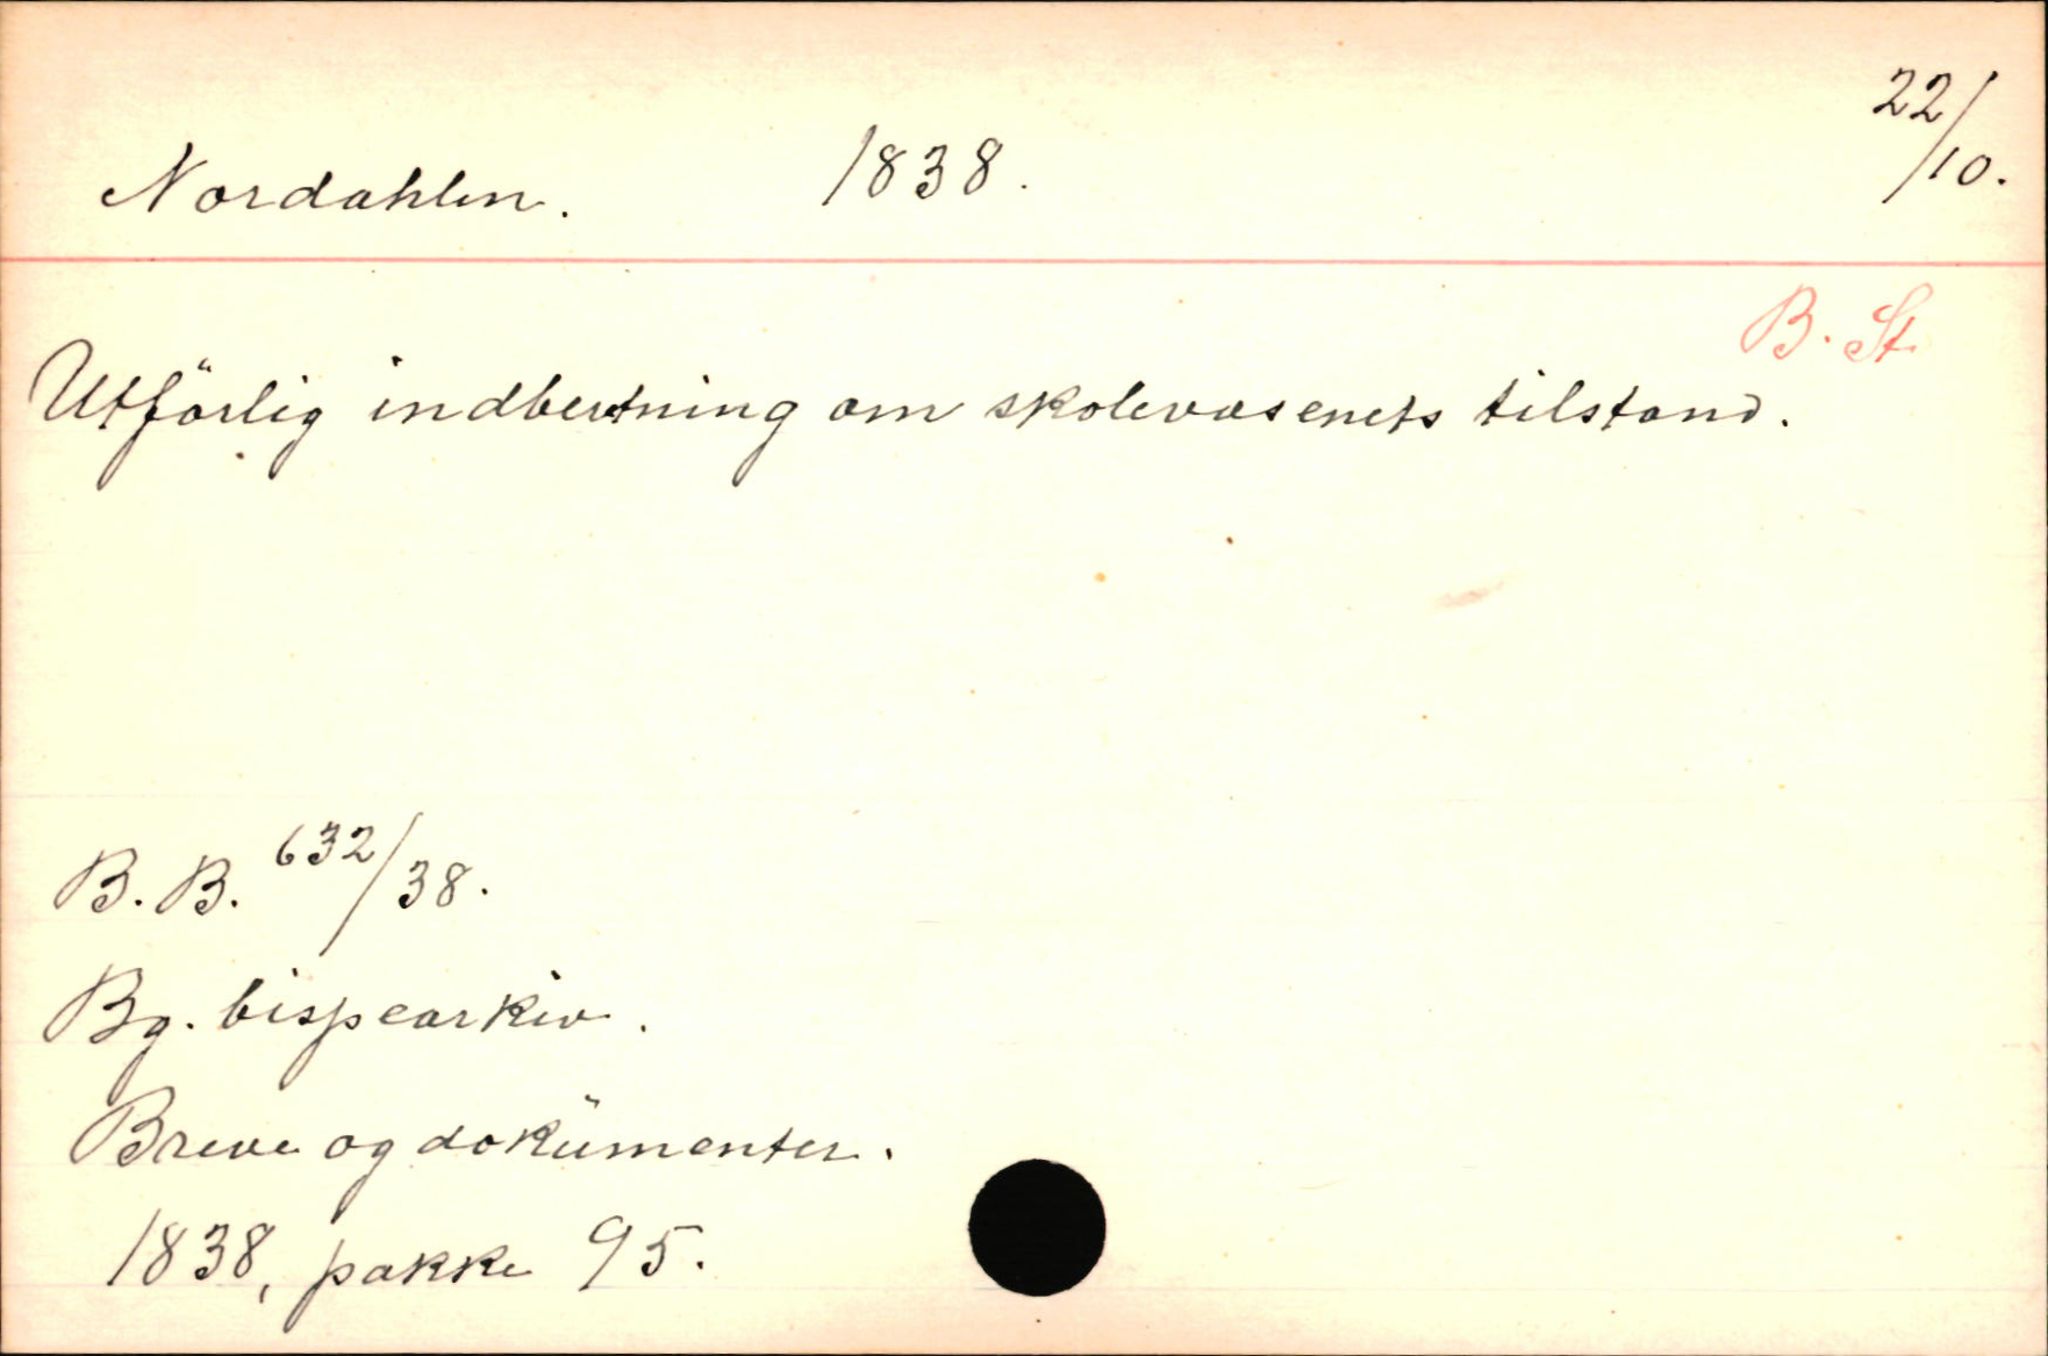 Nordahlen. 1838. 22/10.
B. St.
Utförlig indbertning om skolevæsenets tilstand.
B. B. 632/38.
Bg. bispearkiv.
Breve og dokümenter.
1838, pakke 95.